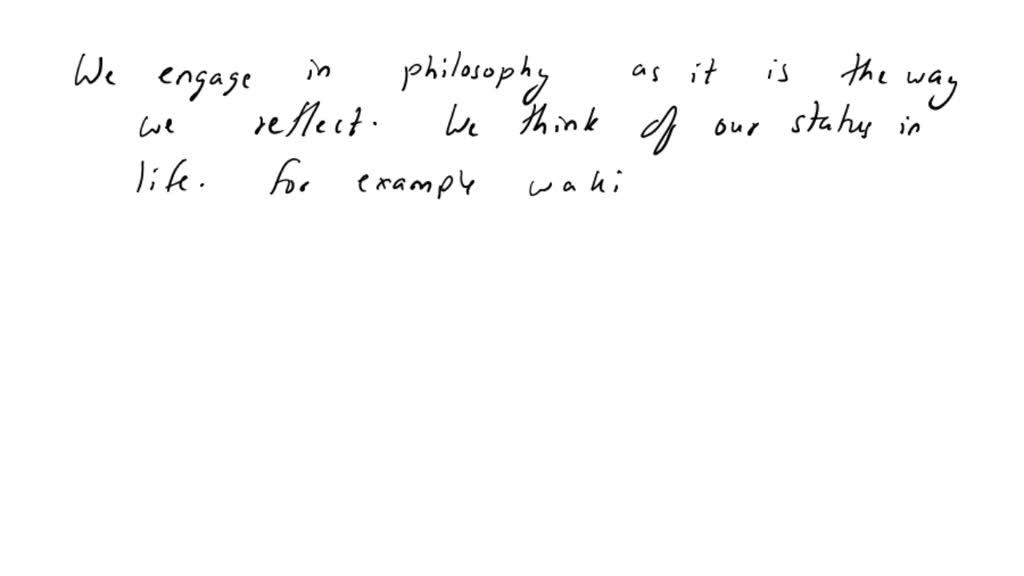 We engage in philosophy as it is the way
we reflect. We think of our status in
life. For example waki